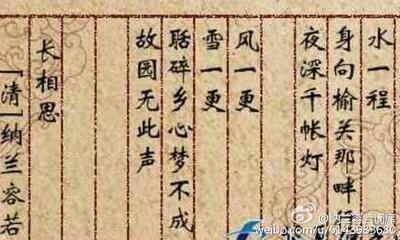 水一程
身向榆关那畔行
夜深千帐灯
风一更
雪一更
聒碎乡心梦不成
故园无此声
长相思
[清]纳兰容若